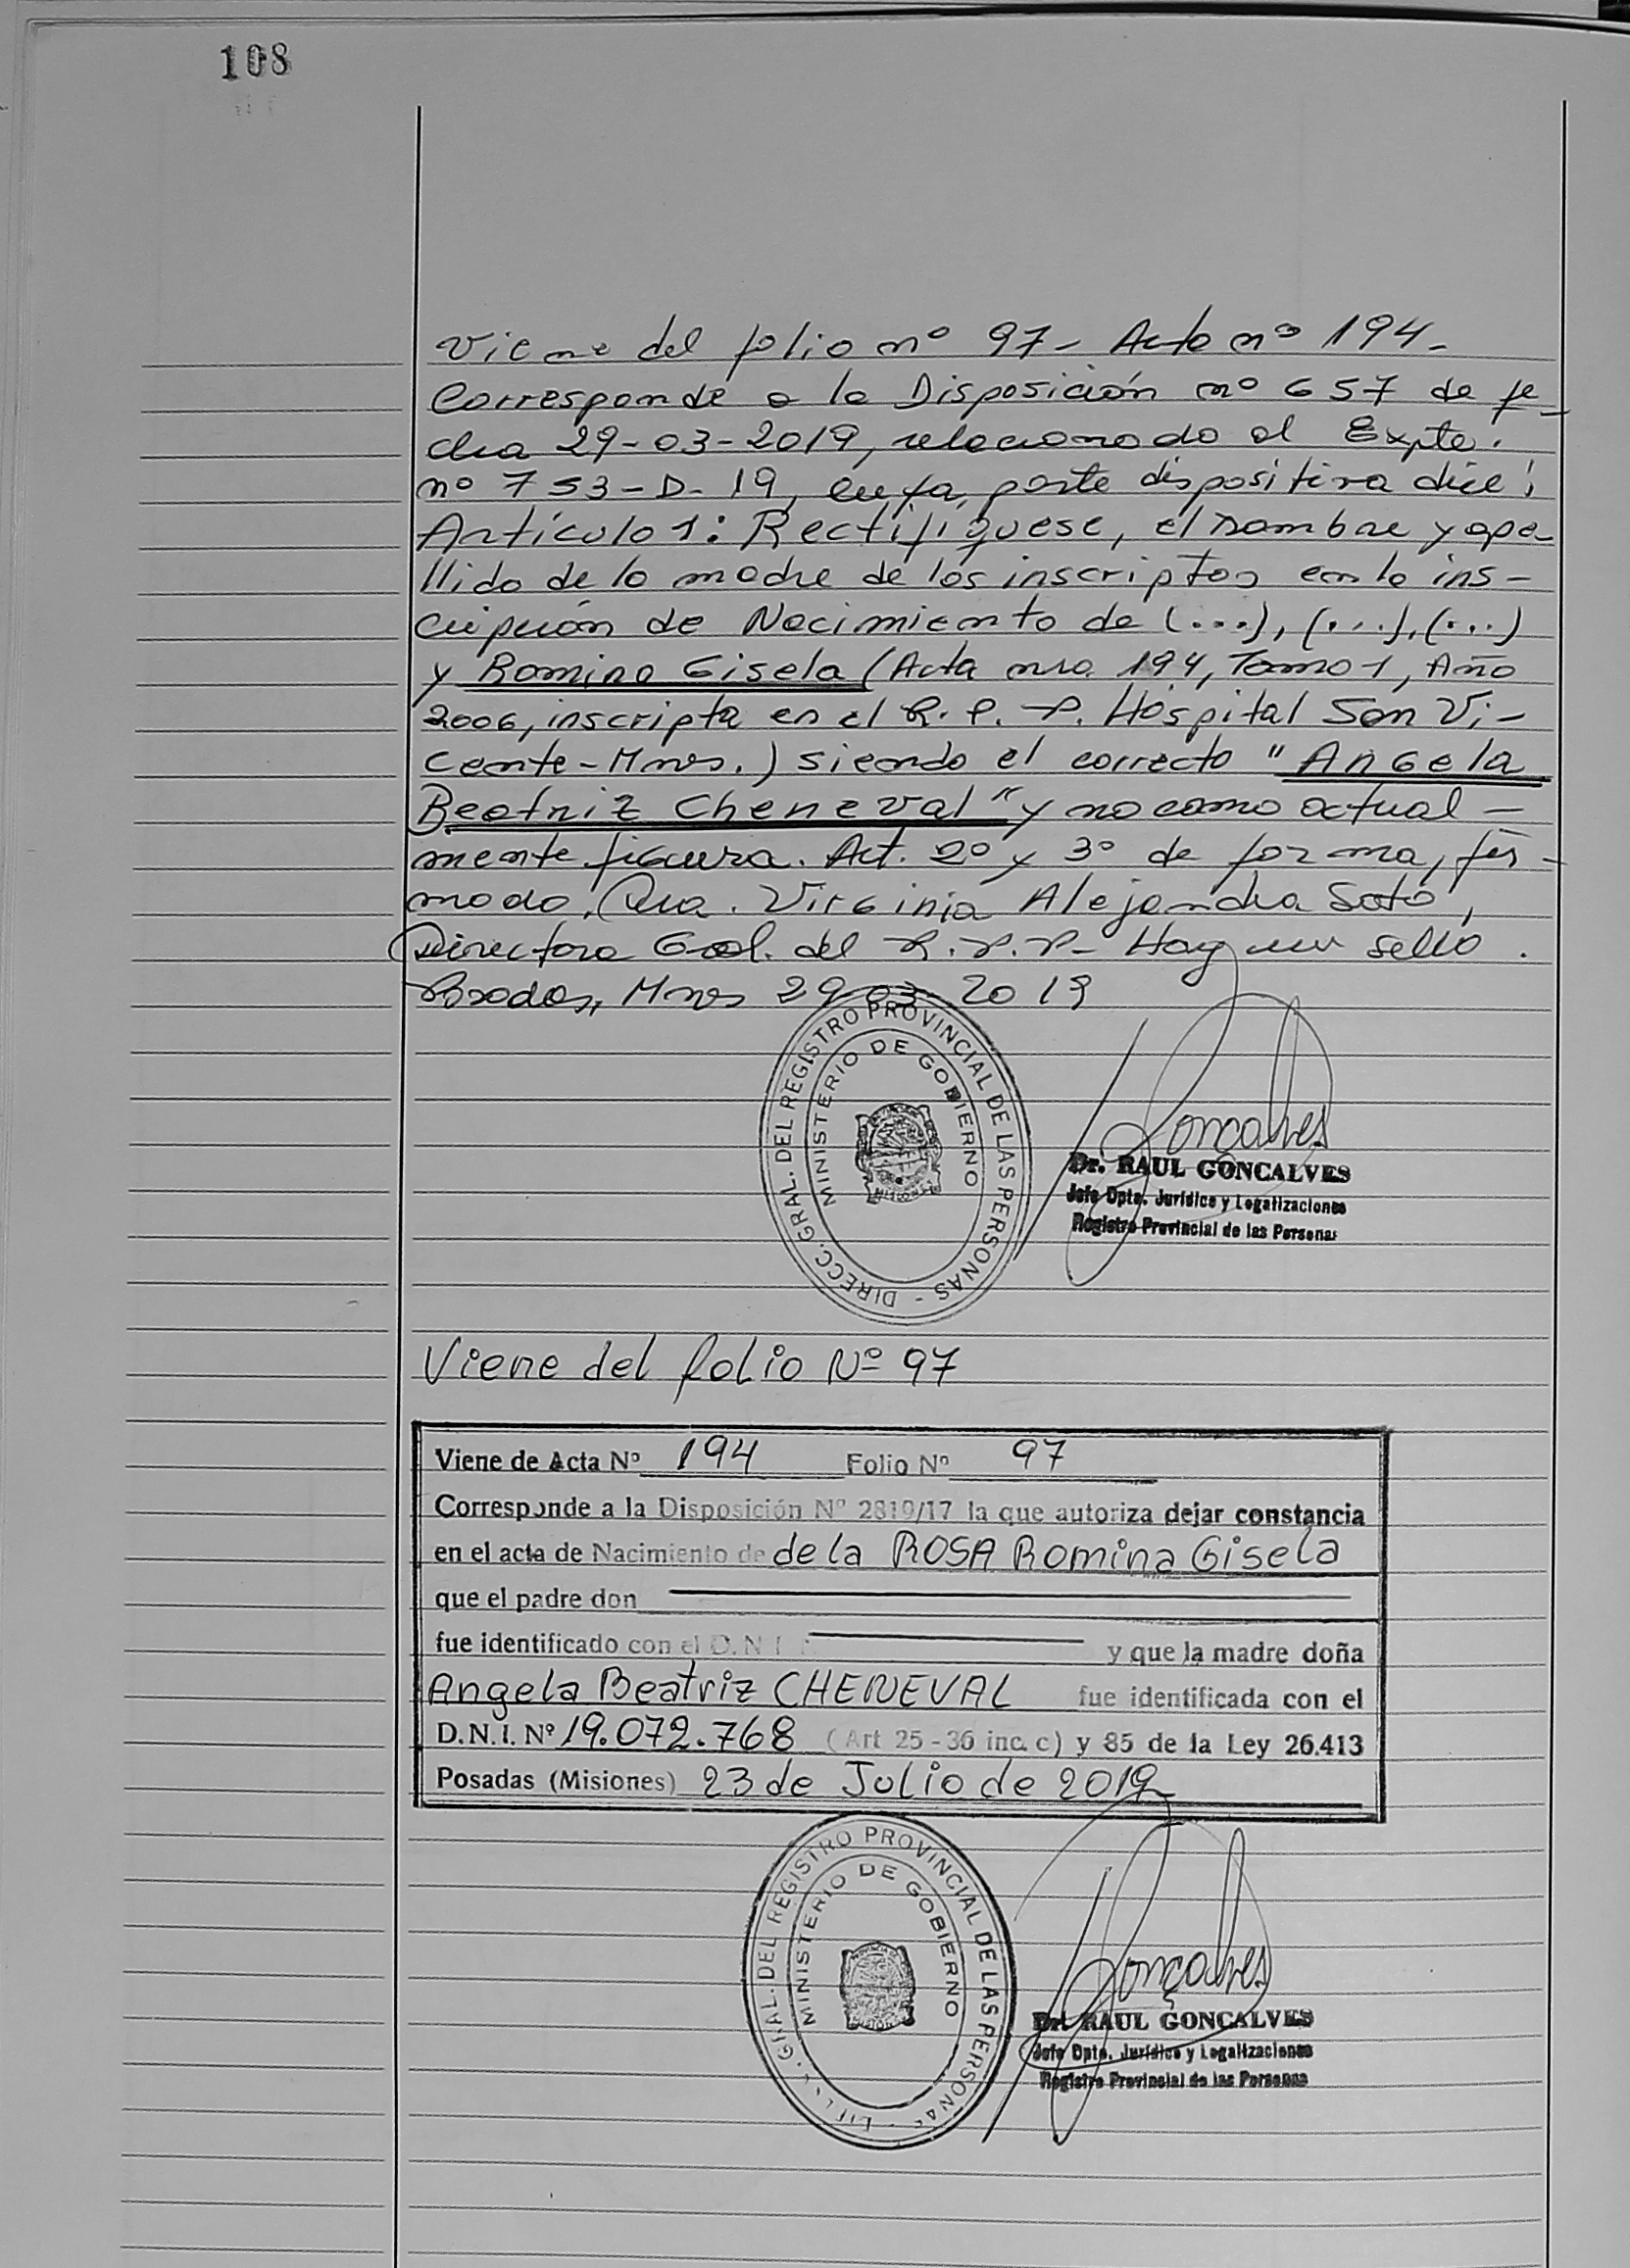 108
Viene del folio nº 97 - Acta nº 194 -
Corresponde a la Disposición nº 657 de fe-
cha 29-03-2019, relacionado al Expte.
nº 753-D-19, cuya parte dispositiva dice:
Artículo 1: Rectifíquese, el nombre y ape-
llido de la madre de los inscriptos en la ins-
cripción de Nacimiento de (...), (...), (...)
y Romina Gisela (Acta nro. 194, Tomo 1, Año
2006, inscripta en el R. P. P. Hospital San Vi-
cente - Mnes.) siendo el correcto "Angela
Beatriz Cheneval" y no como actual-
mente figura. Art. 2º y 3º de forma, fir-
mado, Dra. Virginia Alejandra Soto,
Directora Gral. del R.P.P- Hay un sello.
Posadas, Mnes 29-03-2019
DIRECC. GRAL. DEL REGISTRO PROVINCIAL DE LAS PERSONAS -
MINISTERIO DE GOBIERNO
Goncalves
Dr. RAUL GONCALVES
Jefe Dpto. Jurídico y Legalizaciones
Registro Provincial de las Personas
Viene del folio Nº 97
Viene de Acta Nº 194 Folio Nº 97
Corresponde a la Disposición Nº 2819/17 la que autoriza dejar constancia
en el acta de Nacimiento de de la ROSA Romina Gisela
que el padre don
fue identificado con el D.N.I. y que la madre doña
Angela Beatriz CHENEVAL fue identificada con el
D.N.I. Nº 19.072.768 (Art 25 - 36 inc. c) y 85 de la Ley 26.413
Posadas (Misiones) 23 de Julio de 2019
GRAL. DEL REGISTRO PROVINCIAL DE LAS PERSONAS -
MINISTERIO DE GOBIERNO
Gonçalves
Dr. RAUL GONCALVES
Jefe Dpto. Jurídico y Legalizaciones
Registro Provincial de las Personas